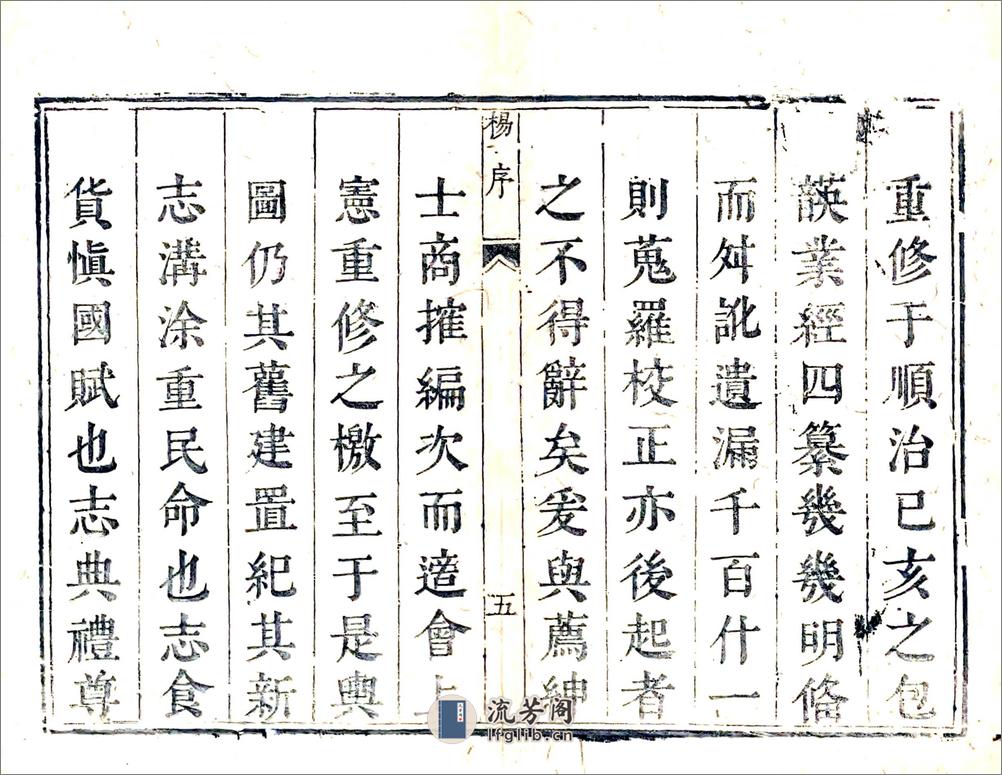 重修于順治已亥之包
韺業經四纂幾幾明俻
而舛訛遺漏千百什一
則蒐羅校正亦後起者
之不得辭矣爰與薦紳
楊序 五
士商搉編次而適會上
憲重修之檄至于是輿
圖仍其舊建置紀其新
志溝涂重民命也志食
貨愼國賦也志典禮尊
流芳阁
lfglib.cn